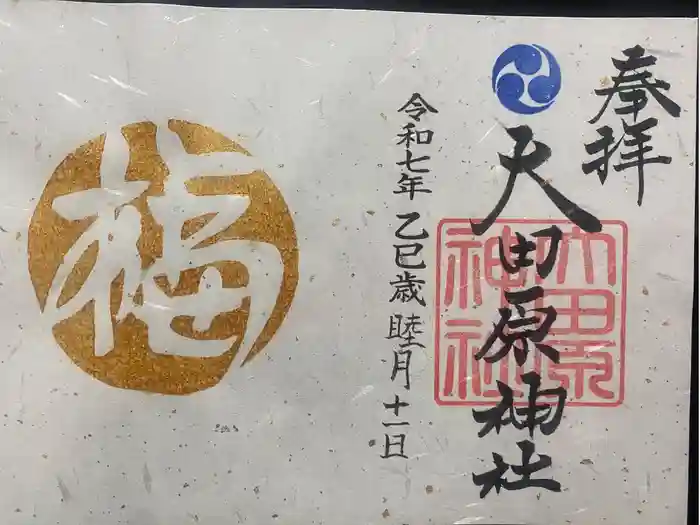 奉拝
大田原神社
大田原
神社
令和七年 乙巳歳 睦月 十一日
福